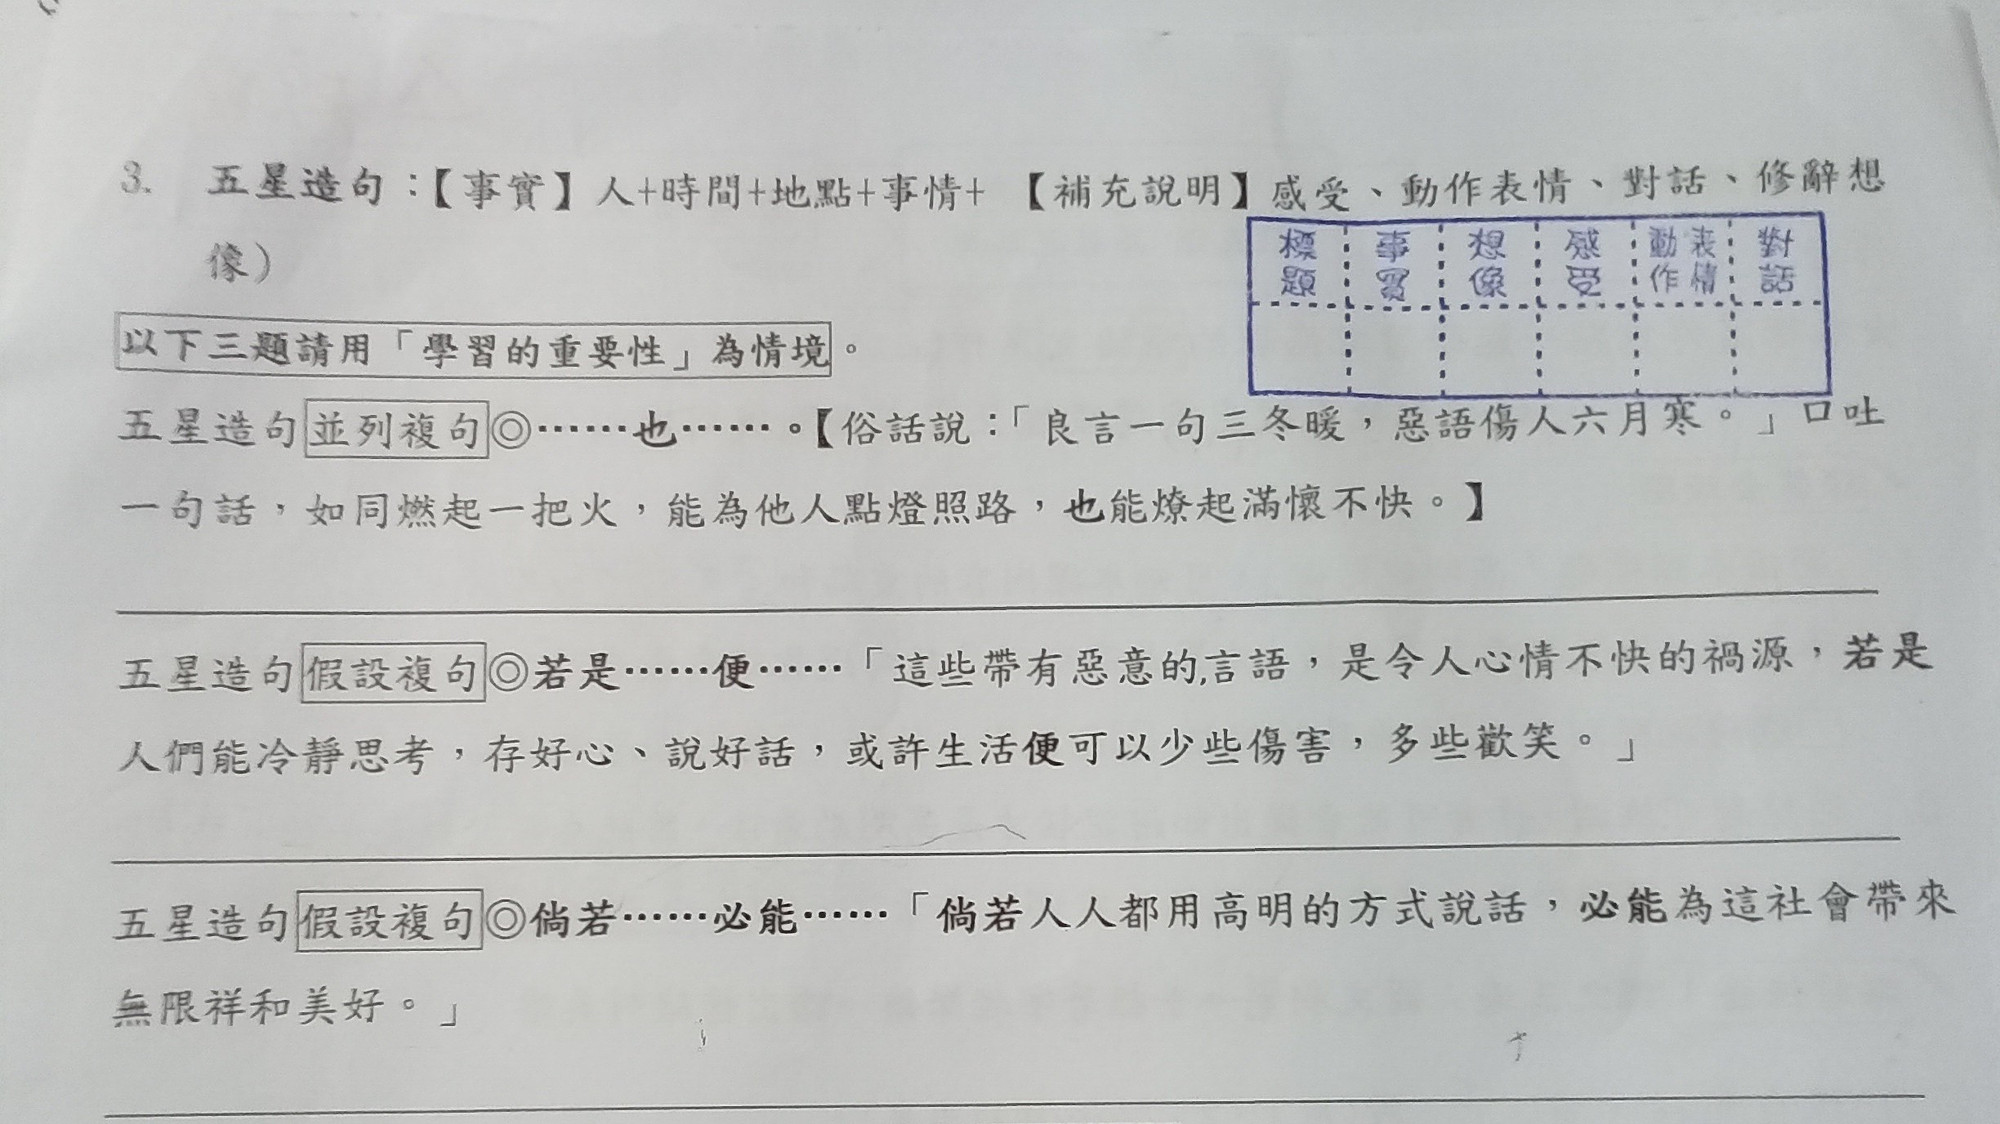 3. 五星造句：【事實】人+時間+地點+事情+ 【補充說明】感受、動作表情、對話、修辭想
像）
標題 事實 想像 感受 動作表情 對話
以下三題請用「學習的重要性」為情境。
五星造句並列複句◎……也……。【俗話說：「良言一句三冬暖，惡語傷人六月寒。」口吐
一句話，如同燃起一把火，能為他人點燈照路，也能燎起滿懷不快。】
五星造句假設複句◎若是……便……「這些帶有惡意的言語，是令人心情不快的禍源，若是
人們能冷靜思考，存好心、說好話，或許生活便可以少些傷害，多些歡笑。」
五星造句假設複句◎倘若……必能……「倘若人人都用高明的方式說話，必能為這社會帶來
無限祥和美好。」